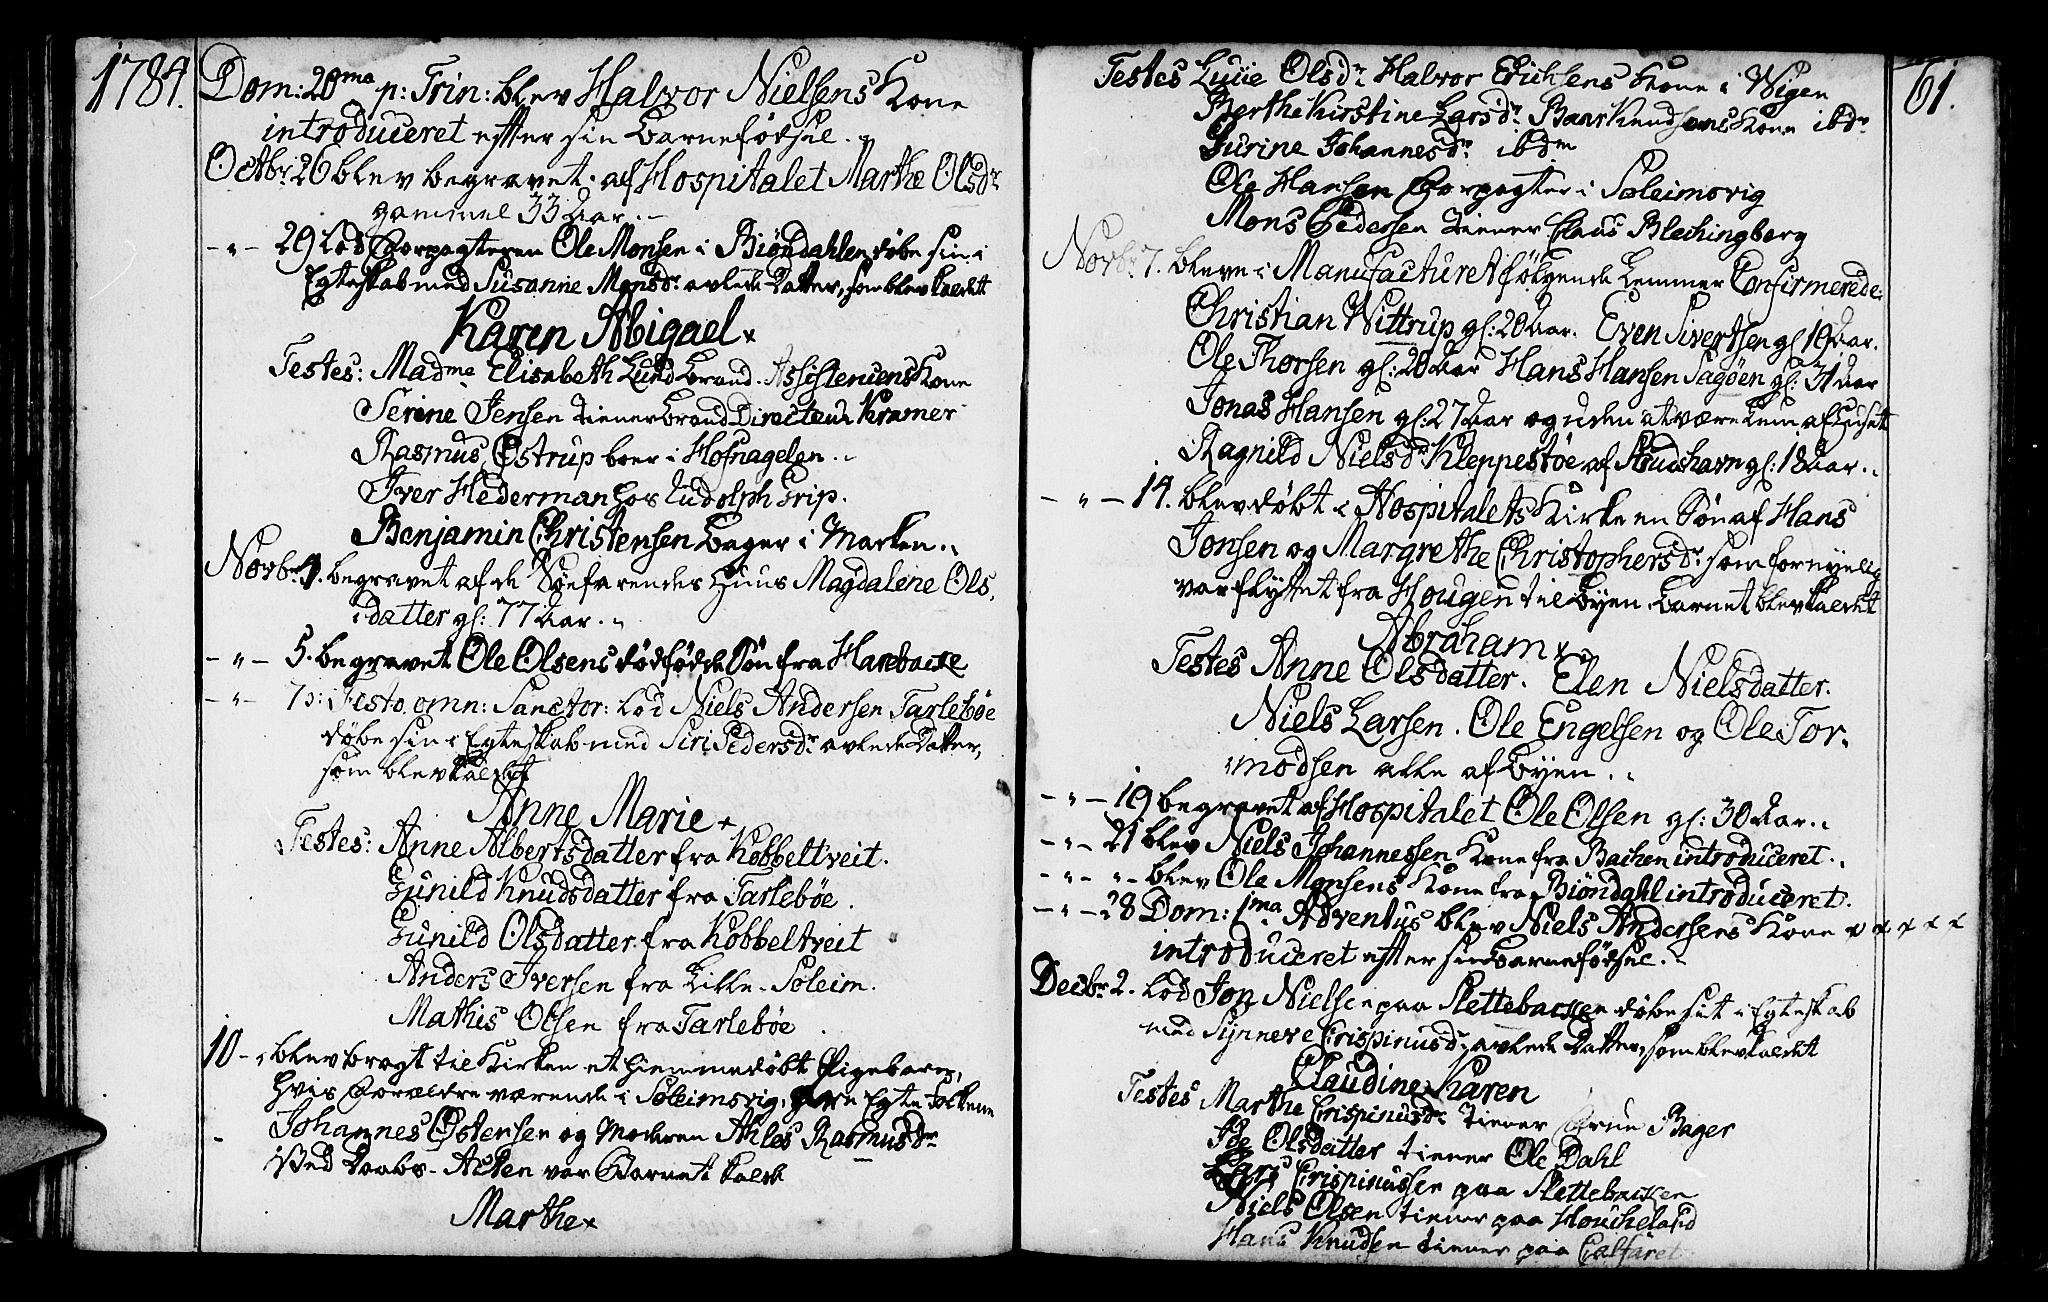 1784.
Dom: 20ma p: Trin: blev Halvor Nielsens Kone
introduceret efter sin Barnefødsel.
Octbr 26 blev begravet af Hospitalet Marthe Olsdr
gammel 33 Aar.
- " - 29 Lod Forpagteren Ole Monsen i Biøndahlen døbe sin i
Egteskab med Susanne Monsdr avlede Datter, som blev kaldet
Karen Abigael
Testes: Madme Elisabeth Lund Brand-Assistencens Kone
Serine Jensen tiener brand Directeur Kramer
Rasmus Østrup boer i Hofnagelen.
Iver Hederman hos Ludolph Grip.
Benjamin Christensen Bager i Marken.
Novbr 3. begravet af de Søefarendes Huus Magdalene Ols,
datter gl: 77 Aar.
- " - 5. begravet Ole Olsens dødfødde Søn fra Harebacke
- " - 7 p: Festo omn: Sanctor: Lod Niels Andersen Tarlebøe
døbe sin i Egteskab med Siri Pedersdr avlede Datter,
som blev kaldet
Anne Marie
Testes: Anne Albertsdatter fra Kobbeltveit.
Gunild Knudsdatter fra Tarlebøe.
Gunild Olsdatter fra Kobbeltveit
Anders Iversen fra Lille-Soleim.
Mathis Olsen fra Tarlebøe.
10 - blev bragt til Kirken et hiemmedøbt Pigebarn,
hvis Forældre værende i Soleimsvig, ere Egte Folkene
Johannes Østensen og Moderen Ahles Rasmusdr
Ved Daabs-Acten var Barnet kaldt
Marthe
61.
Testes Lucie Olsdr Halvor Erichsens Kone i Wigen
Berthe Kirstine Larsdr Baar Knudsens Kone ibdm
Gurine Johannesdr ibdm
Ole Hansen Forpagter i Soleimsvig
Mons Pedersen tiener Claus Blechingberg
Novbr 7. bleve i Manufacturet følgende Lemmer Confirmerede:
Christian Wittrup gl: 20 Aar. Even Sivertsen gl 19 Aar.
Ole Thorsen gl: 20 Aar Hans Hansen Sagøen gl: 31 Aar
Jonas Hansen gl: 27 Aar og uden at være Lem af Huset
Ragnild Nielsdr Kleppestøe af Strudshavn gl: 18 Aar.
- " - 14. blev døbt i Hospitalets Kirke en Søn af Hans
Jonsen og Margrethe Christophersdr som fornyelig
var flyttet fra Hougen til Byen, Barnet blev kaldet
Abraham
Testes Anne Olsdatter. Elen Nielsdatter.
Niels Larsen. Ole Engelsen og Ole Tor-
modsen alle af Byen.
- " - 19 begravet af Hospitalet Ole Olsen gl: 30 Aar.
- " - 21 blev Niels Johannessen Kone fra Backen introduceret.
- " - " - blev Ole Monsens Kone fra Biøndahl introduceret.
- " - 28 Dom: 1ma Adventus blev Niels Andersens Kone
introduceret efter sin Barnefødsel.
Decbr 2. Lod Jon Nielsen paa Slettebacken døbe sit i Egteskab
med Synneve Crispinusdr avlede Datter, som blev kaldet
Claudine Karen
Testes Marthe Crispinusdr tiener Bager
Ide Olsdatter tiener Ole Dahl
Lars Crispinussen paa Slettebacken
Niels Olsen tiener paa Houcheland
Hans Knudsen tiener paa Calfaret